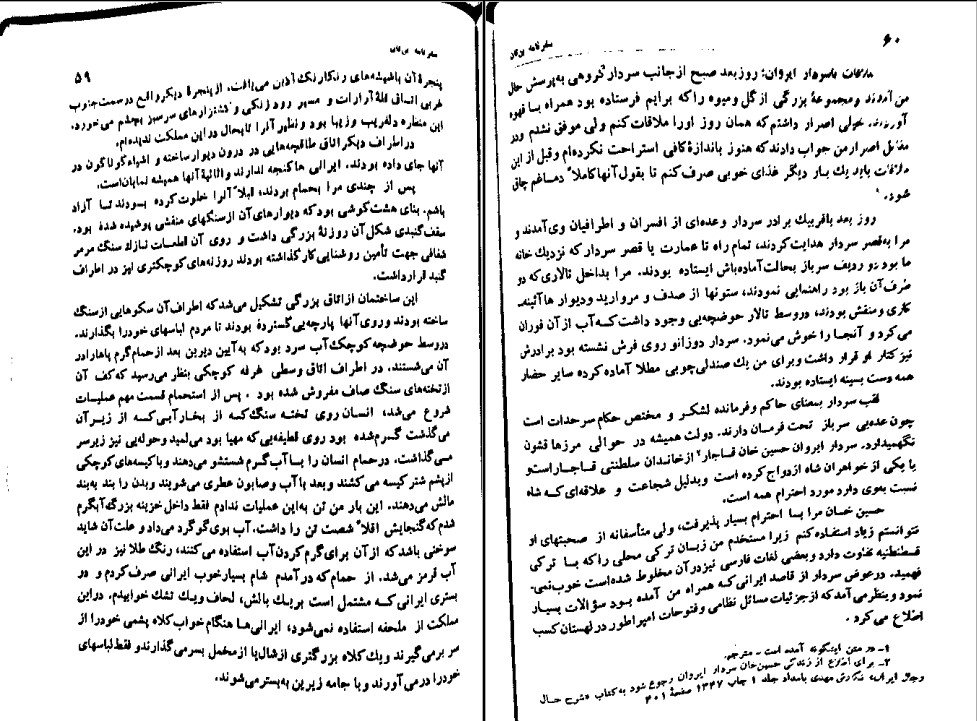 سفرنامه بن تان
۵۹
پنجرهٔ آن باشیشه‌های رنگارنگ آذین می‌یافت، از پنجرهٔ دیگر واقع در سمت جنوب
غربی انسانی قلهٔ آرارات و مسیر رود زنگی و کشتزارهای سرسبز بچشم می‌خورد.
این منظره دلفریب و زیبا بود و نظیر آنرا تابحال در این مملکت ندیده‌ام.
در اطراف دیگر اتاق طاقچه‌هایی در درون دیوار ساخته و اشیاء گوناگون در
آنها جای داده بودند. ایرانی ها گنجه ندارند و اثاثیهٔ آنها همیشه نمایان است.
پس از چندی مرا بحمام بردند، قبلاً آنرا خلوت کرده بسودند تـا آزاد
باشم. بنای هشت گوشی بود که دیوارهای آن از سنگهای منقشی پوشیده شده بود.
سقف گنبدی شکل آن روزنهٔ بزرگی داشت و روی آن قطعـات نازك سنگ مرمر
شفافی جهت تأمین روشنایی کار گذاشته بودند روزنه‌های کوچکتری نیز در اطراف
گنبد قرار داشت.
این ساختمان از اتاق بزرگی تشکیل می‌شد که اطراف آن سکوهایی از سنگ
ساخته بودند و روی آنها پارچه‌یی گستردهٔ بودند تا مردم لباسهای خود را بگذارند.
در وسط حوضچه کوچک آب سرد بود که به آیین دیرین بعد از حمام گرم پاها را در
آن می‌شستند. در اطراف اتاق وسطی غرفه کوچکی بنظر می‌رسید که کف آن
از تخته‌های سنگ صاف مفروش شده بود . پس از استحمام قسمت مهم عملیـات
شروع می‌شد، انسان روی تخته سنگ کـه از بخار آبی‌کـه از زیـر آن
می‌گذشت گـرم شده بود روی قطیفه‌یی که مهیا بود می‌لمید و حوله‌یی نیز زیر سر
مـی‌گذاشت. در حمام انسان را بـا آب گـرم شستشو می‌دهند و با کیسه‌های کوچکی
از پشم شتر کیسه می‌کشند و بعد با آب و صابون عطری می‌شویند و بدن را بند به بند
مالش می‌دهند. این بار من تن به این عملیات ندادم فقط داخل خزینه بزرگ آبگرم
شدم که گنجایش اقلاً شصت تن را داشت. آب بوی گوگرد می‌داد و علت آن شاید
سوختی باشد که از آن برای گرم کردن آب استفاده می‌کنند، رنگ طلا نیز در این
آب قرمز می‌شد. از حمام که درآمدم شام بسیار خوب ایرانی صرف کردم و در
بستری ایرانی کـه مشتمل است بر یك بالش، لحاف و یـك تشك خوابیدم. در این
مملکت از ملحفه استفاده نمی‌شود، ایرانی‌هـا هنگام خواب کلاه پشمی خود را از
سر برمی‌گیرند و یك کلاه بزرگتری از شال یا از مخمل بسر می‌گذارند و فقط لباسهای
خود را درمی‌آورند و با جامه زیرین به بستر می‌شوند.
۶۰
سفرنامه بن تان
ملاقات با سردار ایروان: روز بعد صبح از جانب سردار گروهی به پرسش حال
من آمدند و مجموعهٔ بزرگی از گل و میوه را که برایم فرستاده بود همراه بـا قهوه
آوردند. خیلی اصرار داشتم که همان روز او را ملاقات کنم ولی موفق نشدم و در
مقابل اصرار من جواب دادند که هنوز باندازهٔ کافی استراحت نکرده‌ام و قبل از این
ملاقات باید یك بار دیگر غذای خوبی صرف کنم تا بقول آنها کاملاً دمـاغم چاق
شود.۱
روز بعد باقربیك برادر سردار و عده‌ای از افسران و اطرافیان وی آمدند و
مرا به قصر سردار هدایت کردند، تمام راه تا عمارت یا قصر سردار که نزدیك خانه
ما بود دو ردیف سرباز بحالت آماده‌باش ایستاده بودند. مرا بداخل تالاری که دو
طرف آن باز بود راهنمایی نمودند، ستونها از صدف و مروارید و دیوارها آئینه
کاری و منقش بودند، در وسط تالار حوضچه‌یی وجود داشت که آب از آن فوران
می کرد و آنجا را خوش می‌نمود. سردار دوزانو روی فرش نشسته بود برادرش
نیز کنار او قرار داشت و برای من یك صندلی چوبی مطلا آماده کرده سایر حضار
همه دست بسینه ایستاده بودند.
لقب سردار بمعنای حاکم و فرمانده لشکـر و مختص حکام سرحدات است
چون عده‌یی سرباز تحت فرمان دارند. دولت همیشه در حوالی مرزها قشون
نگهمیدارد. سردار ایروان حسین خان قـاجار۲ از خاندان سلطنتی قـاجار است و
با یکی از خواهران شاه ازدواج کرده است و بدلیل شجاعت و علاقه‌ای کـه شاه
نسبت بوی دارد مورد احترام همه است.
حسین خـان مرا بـا احترام بسیار پذیرفت، ولی متأسفانه از صحبتهای او
نتوانستم زیاد استفاده کنم زیرا مستخدم من زبـان ترکی محلی را که بـا ترکی
قسطنطنیه تفاوت دارد و بعضی لغات فارسی نیز در آن مخلوط شده است خوب نمی‌
فهمید. در عوض سردار از قاصد ایرانی کـه همراه من آمده بـود سؤالات بسیار
نمود و بنظر می‌آمد که از جزئیات مسائل نظامی و فتوحات امپراطور در لهستان کسب
اطلاع می‌کرد .
۱ـ در متن اینگونه آمده است ـ مترجم.
۲ـ برای اطلاع از زندگی حسین‌خان سردار ایروان رجوع شود به کتاب «شرح حال
رجال ایران» نگارش مهدی بامداد جلد ۱ چاپ ۱۳۴۷ صفحهٔ ۴۰۱